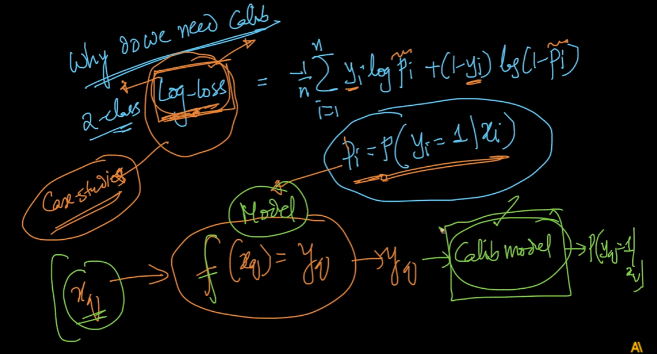 Why do we need Calib
2-class Log-loss = -1/n n∑i=1 yi·log pi + (1-yi) log(1-pi)
pi = P(yi = 1|xi)
Case-studies
Model
xq → f(xq) = yq → yq → Calib model → P(yq=1|xq)
AI